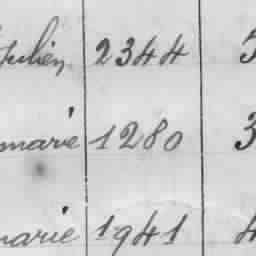 Julien 2344
marie 1280 3
marie 1941 4